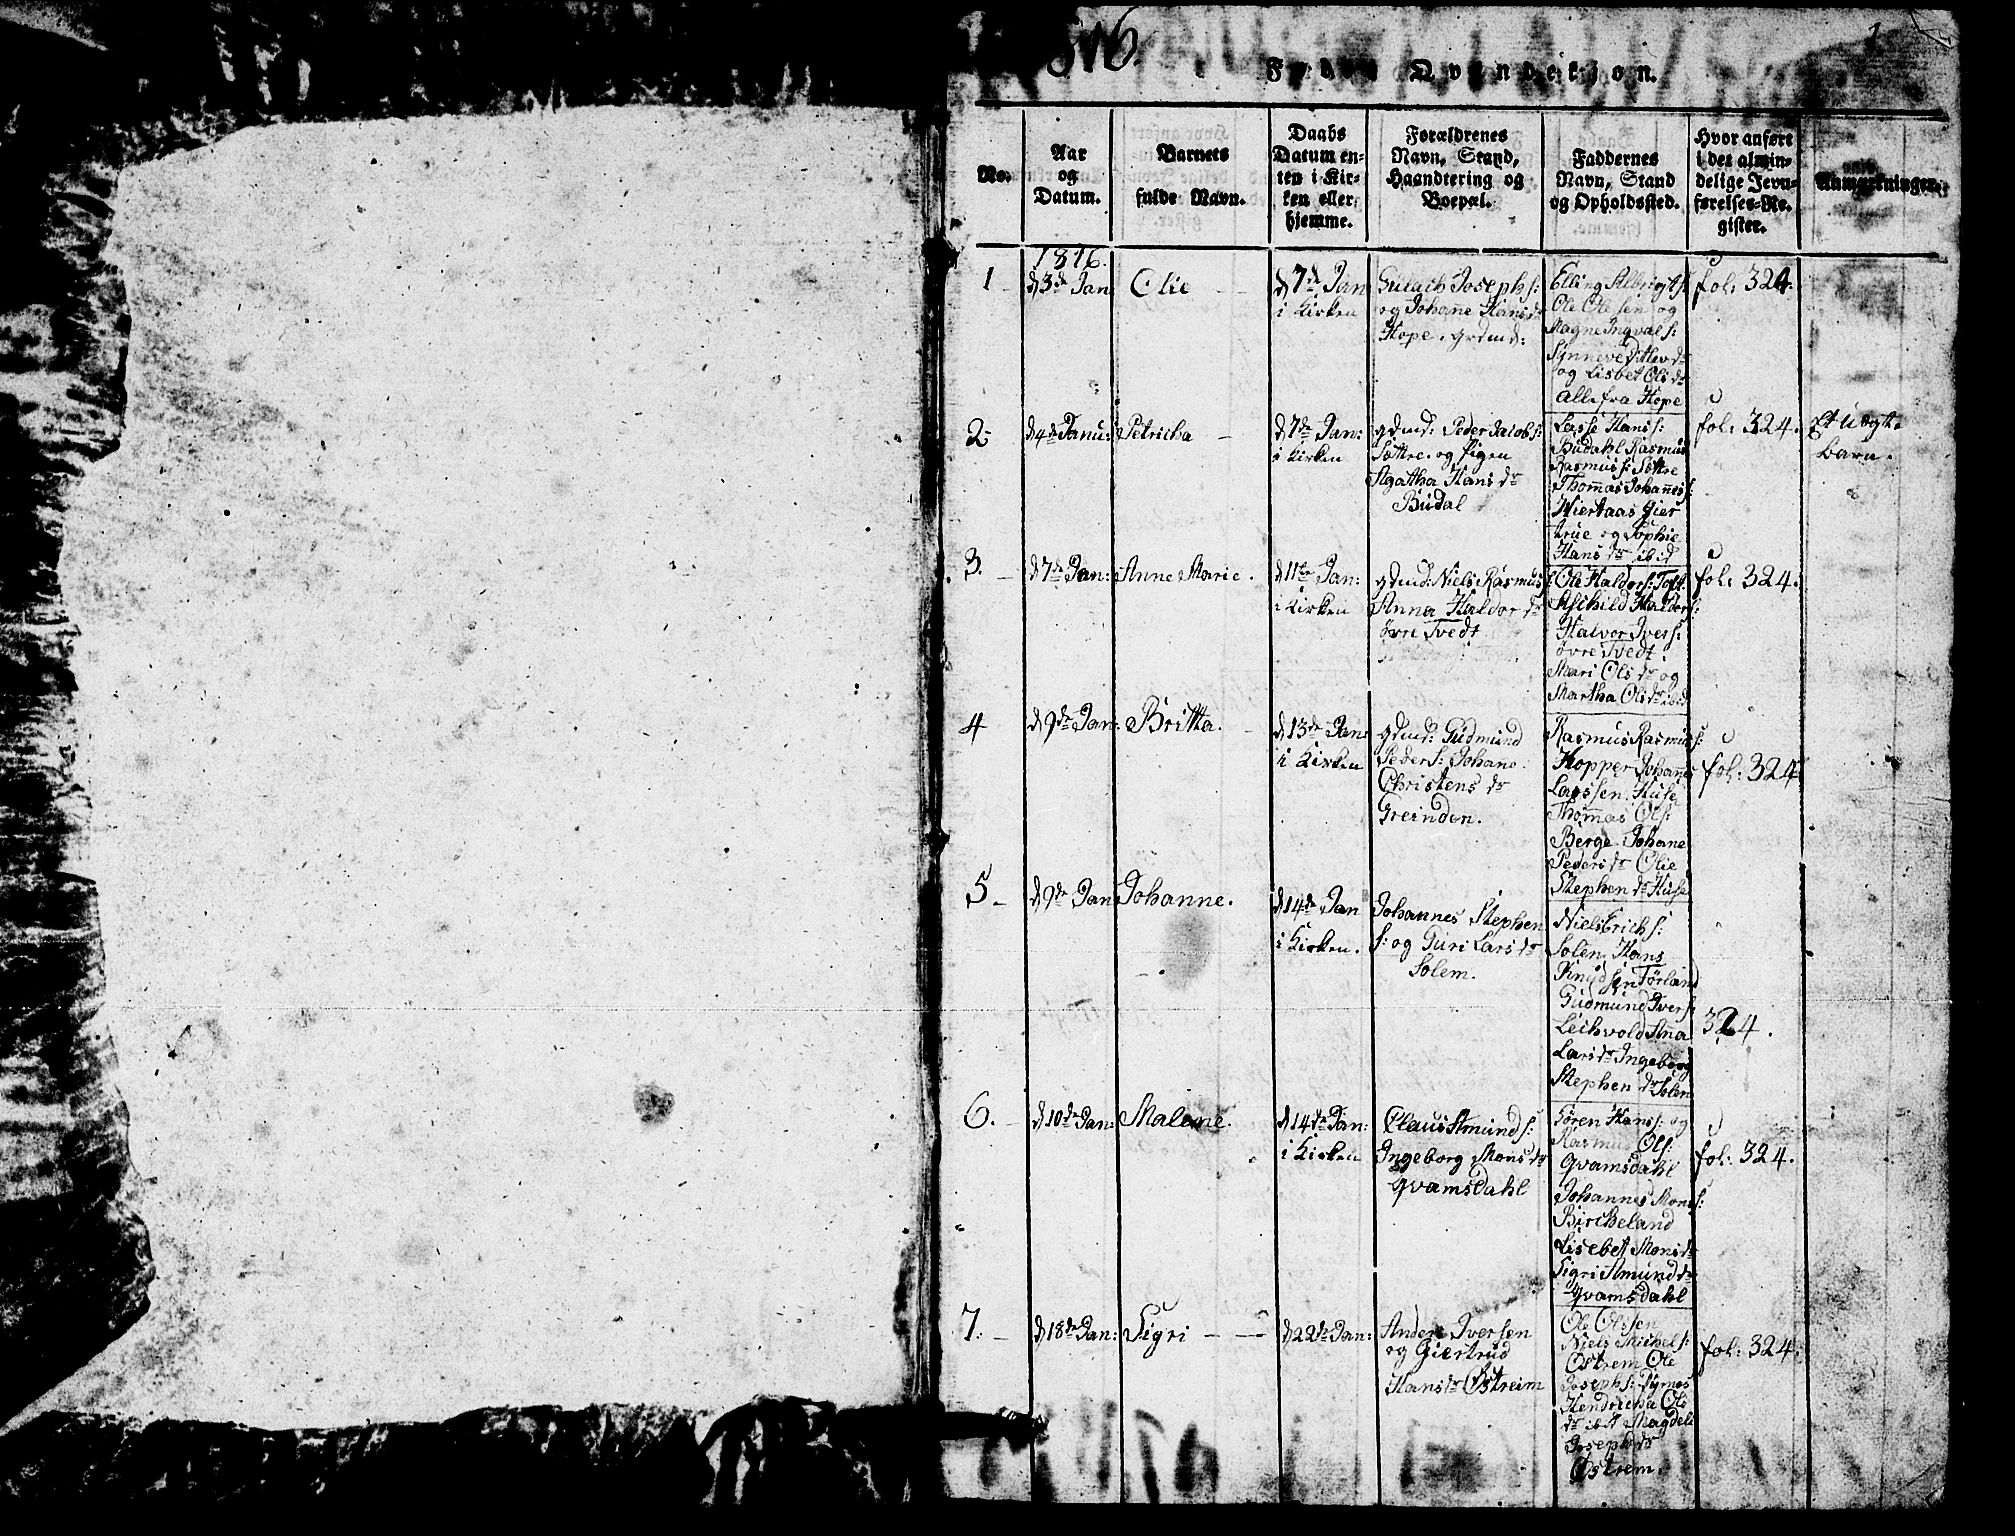 1816.
1
Fødte Qvindekjøn.
No.
Aar
og
Datum.
Barnets
fulde Navn.
Daabs
Datum en-
ten i Kir-
ken eller
hjemme.
Forældrenes
Navn, Stand,
Haandtering og
Boepæl.
Faddernes
Navn, Stand
og Opholdssted.
Hvor anført
i det almin-
delige Jevn-
førelses-Re-
gister.
Anmærkninger.
1
1816.
d 3de Jan
Olie
d 7de Jan
i Kirken
Gulach Josephs:
og Johanne Hansdr
Hope. grdmd:
Elling Albrigts:
Ole Olesen og
Magne Ingvals:
Synneve Ditlevdr
og Lisbet Olsdr
alle fra Hope
fol: 324.
2
d 4de Janu:
Petricha
d 7de Jan:
i Kirken
gdmd: Peder Jacobs:
Sættre. og Pigen
Agatha Hansdr
Budal
Lasse Hans:
Budahl Rasmus
Rasmuss: Settre
Thommas Johannes:
Hiertaas Gier
true og Sophie
Hansdr ibid
fol: 324.
Et uægte
Barn.
3.
d 7de Jan:
Anne Marie.
d 11te Jan:
i Kirken
gdmd: Niels Rasmus:
Anna Haldordr
øvre Tvedt
Ole Haldors: Toft
Aschild Haldors:
Halvor Ivers:
øvre Tvedt
Mari Olsdr og
Martha Olsdr ibid
fol: 324.
4
d 9de Jan:
Britta.
d 13de Jan:
i Kirken
gdmd: Gudmund
Peders: Johane
Christensdr
Greinden.
Rasmus Rasmus:
Hopper Johannes
Larssen Huse
Thommas Ols:
Berge. Johane
Pedersdr Olie
Stephendr Huse
fol: 324
5
d 9de Jan
Johanne.
d 14de Jan
i Kirken.
Johannes Stephen
s: og Guri Larsdr
Solem.
Niels Erichs:
Solen. Hans
Knudsen Førland
Gudmund Ivers:
Leihvold Anna
Larsdr Ingeborg
Stephendr Solen
324.
6.
d 10de Jan:
Malene.
d 14de Jan:
i Kirken
Claus Amunds:
Ingeborg Monsdr
Qvamsdahl
Søren Hans: og
Rasmus Ols:
Qvamsdahl
Johannes Mons:
Bircheland
Lisebet Monsdr
Sigri Amunddr
Qvamsdahl
fol: 324.
7.
d 18de Jan:
Sigri
d 22de Jan:
Anders Iversen
og Giertrud
Hansdr Østreim
Ole Olssen
Niels Michels:
Østrem Ole
Josephs: Symes
Hendricha Ols
dr ibd Magdeli
Josephsdr
Østrem.
fol: 324.